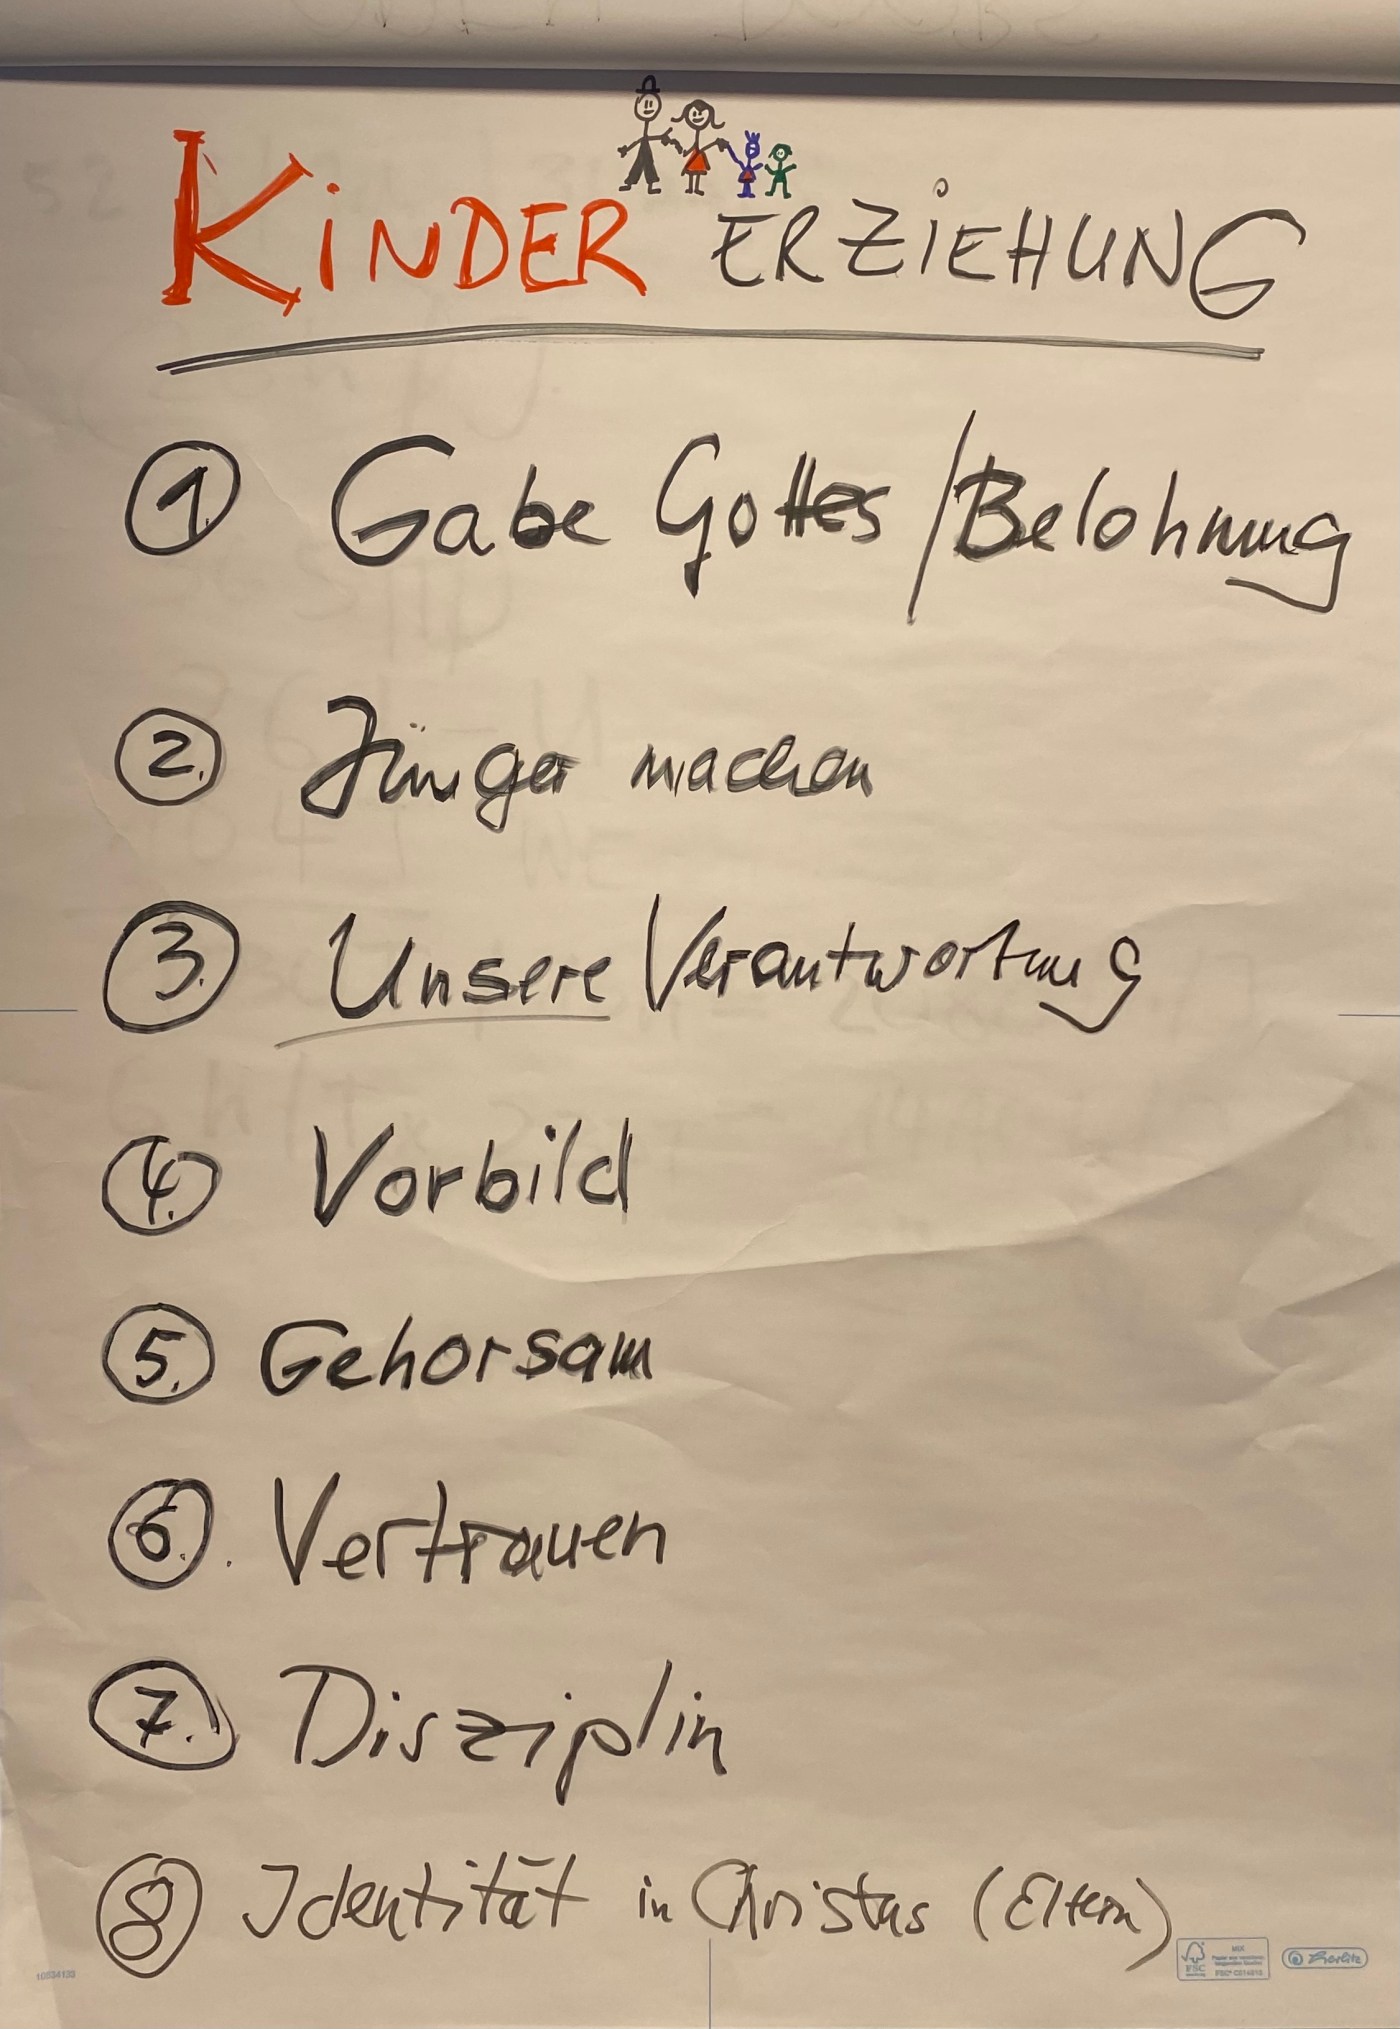 KiNDER ERZiEHUNG
1. Gabe Gottes / Belohnung
2. Jünger machen
3. Unsere Verantwortung
4. Vorbild
5. Gehorsam
6. Vertrauen
7. Disziplin
8 Identität in Christus (Eltern)
MIX
FSC
herlitz